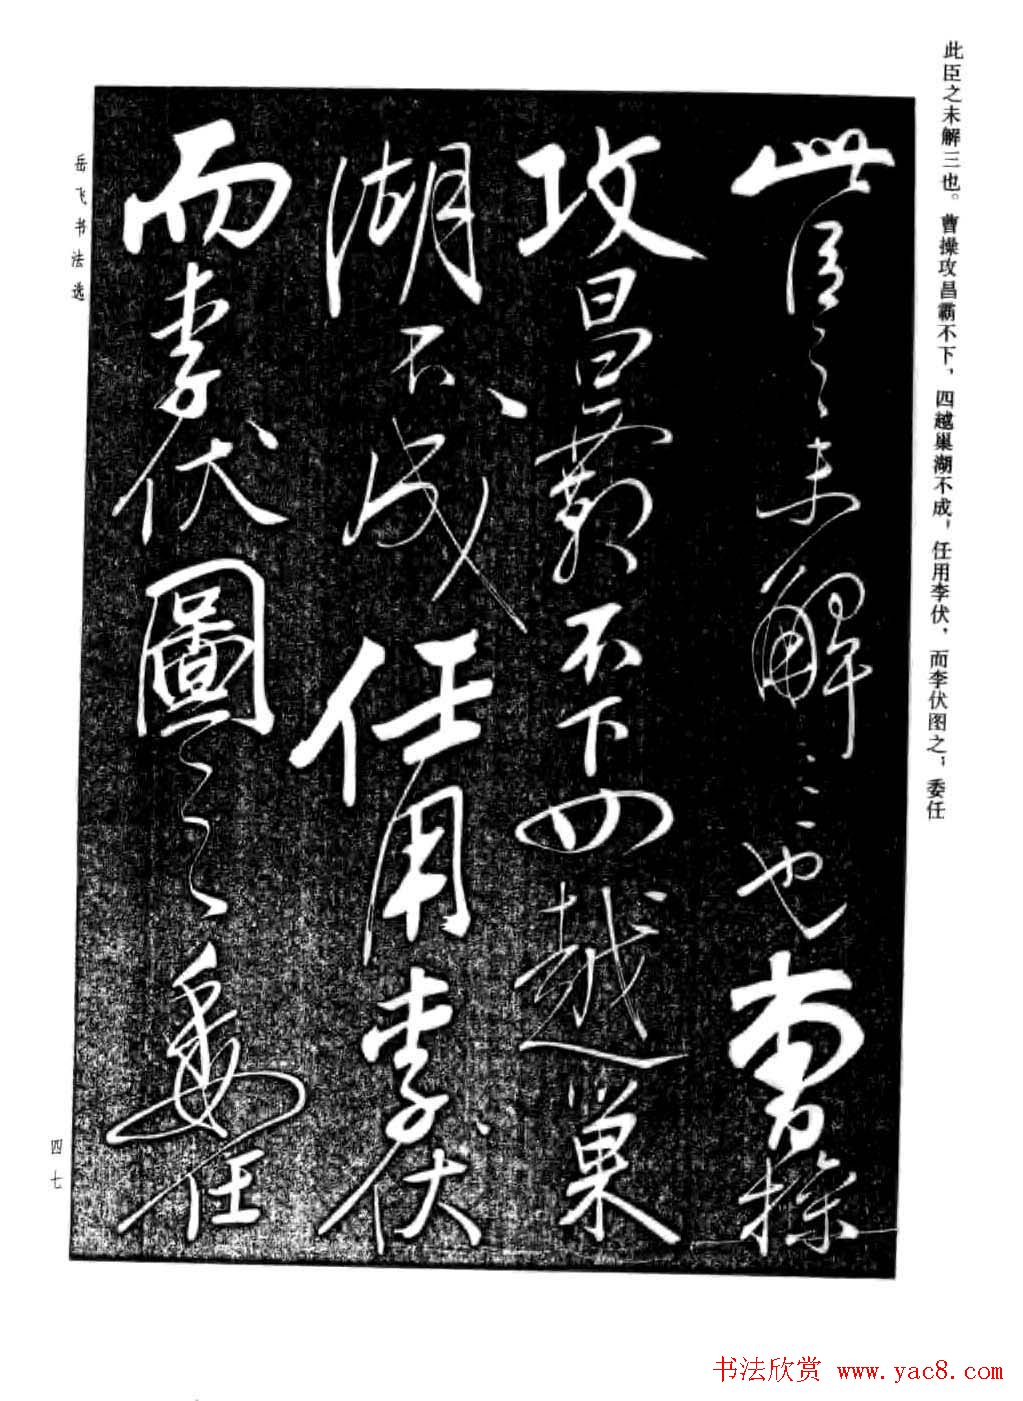 此臣之未解三也。曹操攻昌霸不下，四越巢湖不成，任用李伏，而李伏图之，委任
此臣之未解三也曹操
攻昌霸不下四越巢
湖不成任用李伏
而李伏圖之委任
岳飞书法选
四七
书法欣赏 www.yac8.com